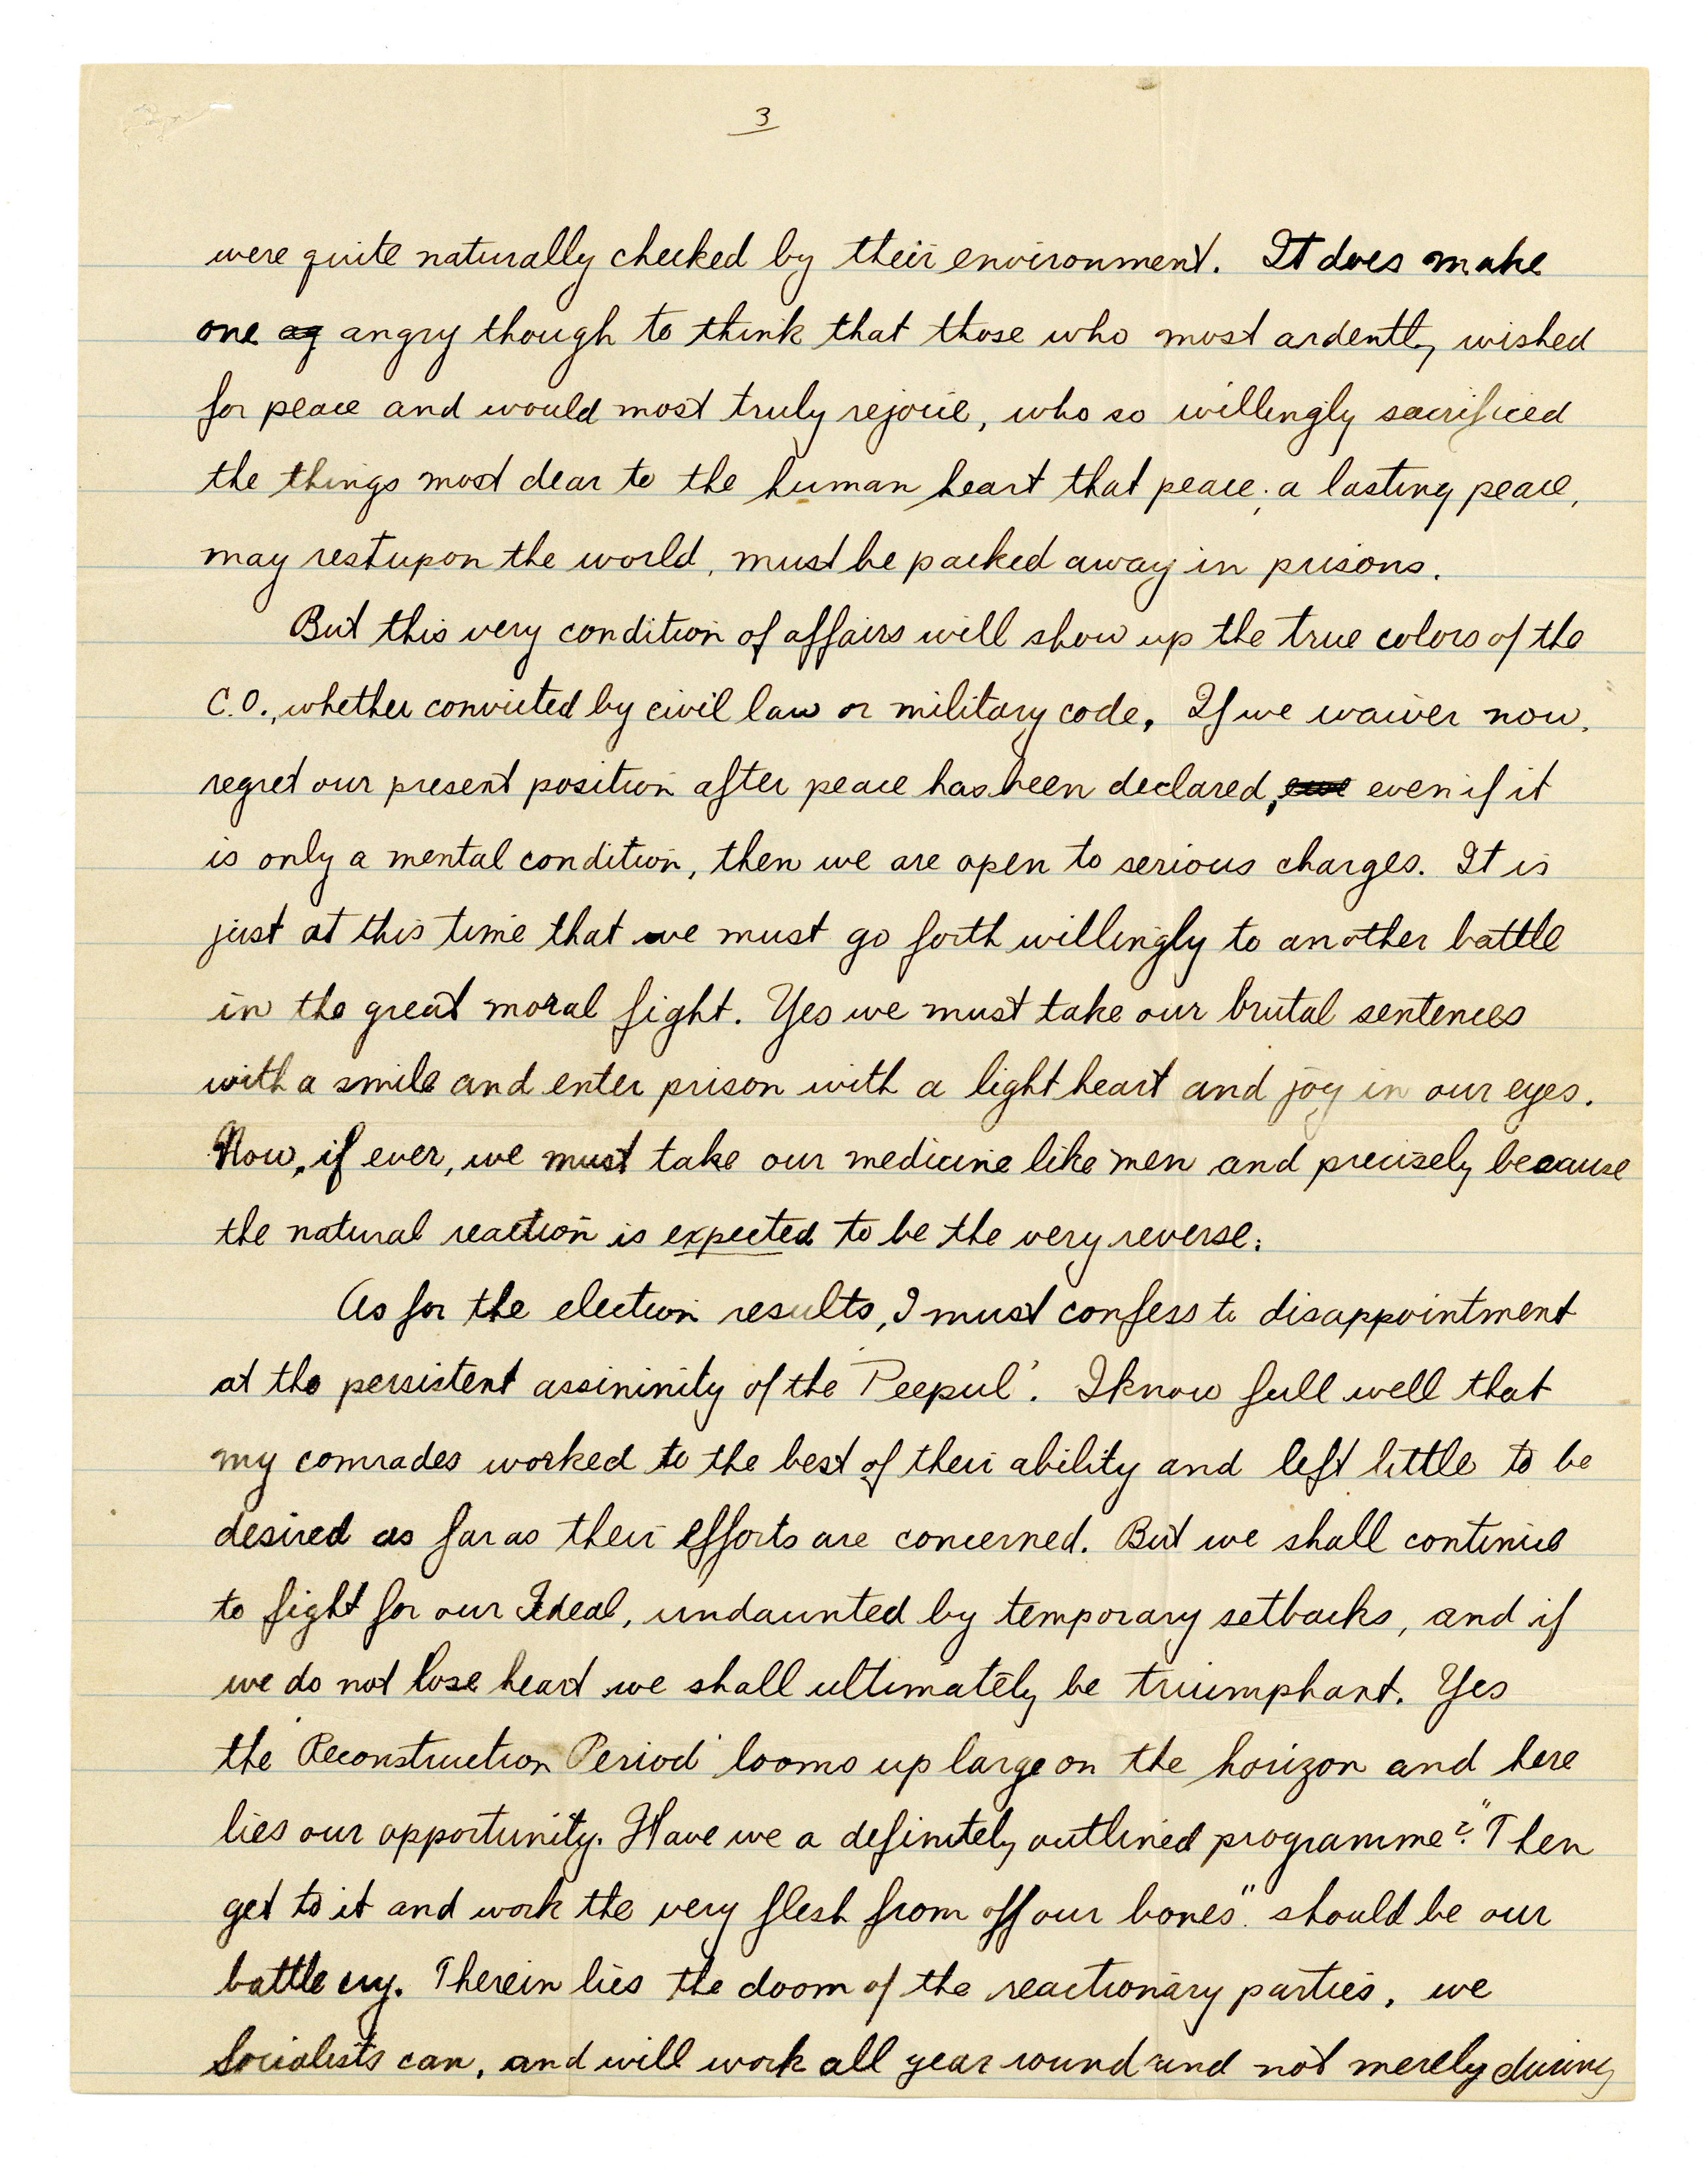 3
were quite naturally checked by their environment. It does make
one ag angry though to think that those who most ardently wished
for peace and would most truly rejoice, who so willingly sacrificed
the things most dear to the human heart that peace, a lasting peace,
may rest upon the world, must be packed away in prisons.
But this very condition of affairs will show up the true colors of the
C.O., whether convicted by civil law or military code. If we waiver now,
regret our present position after peace has been declared, eve even if it
is only a mental condition, then we are open to serious charges. It is
just at this time that we must go forth willingly to another battle
in the great moral fight. Yes we must take our brutal sentences
with a smile and enter prison with a light heart and joy in our eyes.
Now, if ever, we must take our medicine like men and precisely because
the natural reaction is expected to be the very reverse.
As for the election results, I must confess to disappointment
at the persistent assininity of the 'Peepul'. I know full well that
my comrades worked to the best of their ability and left little to be
desired as far as their efforts are concerned. But we shall continue
to fight for our Ideal, undaunted by temporary setbacks, and if
we do not lose heart we shall ultimately be triumphant. Yes
the 'Reconstruction Period' looms up large on the horizon and here
lies our opportunity. Have we a definitely outlined programme? "Then
get to it and work the very flesh from off our bones" should be our
battle cry. Therein lies the doom of the reactionary parties, we
Socialists can, and will work all year round and not merely during